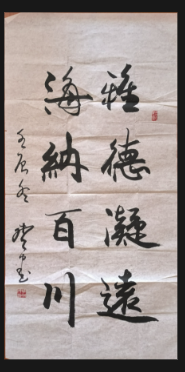 雅德凝遠
海納百川
壬辰冬